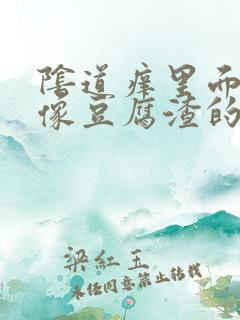 陰道痒里而
像豆腐渣的
梁紅玉
未經同意禁止轉載